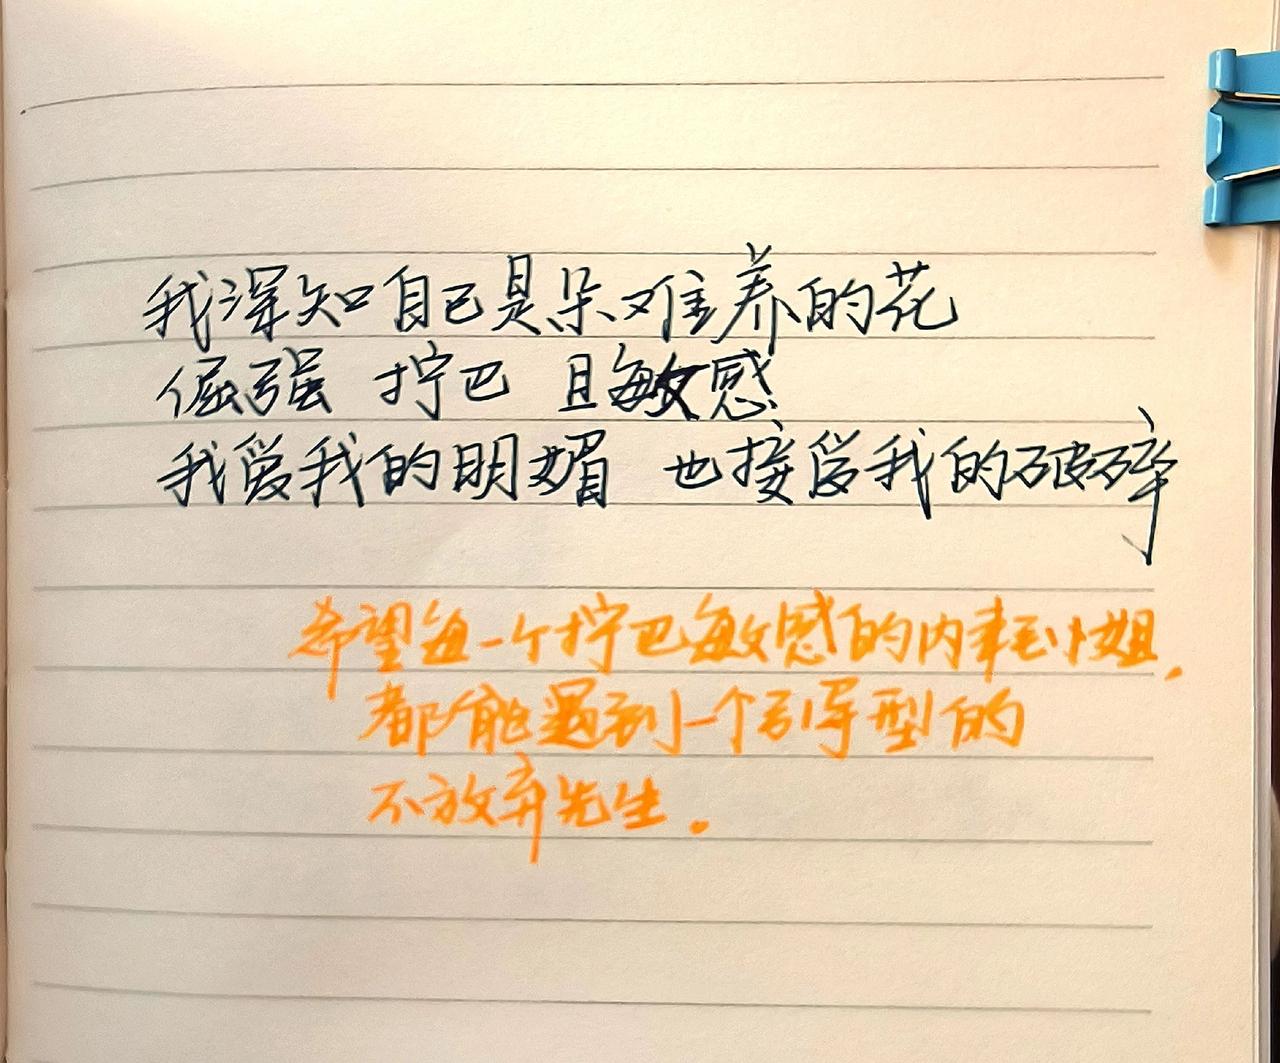 我深知自己是朵难养的花
倔强 拧巴 且敏感
我爱我的明媚 也接受我的破碎
希望每一个拧巴敏感的内耗小姐，
都能遇到一个引导型的
不放弃先生。